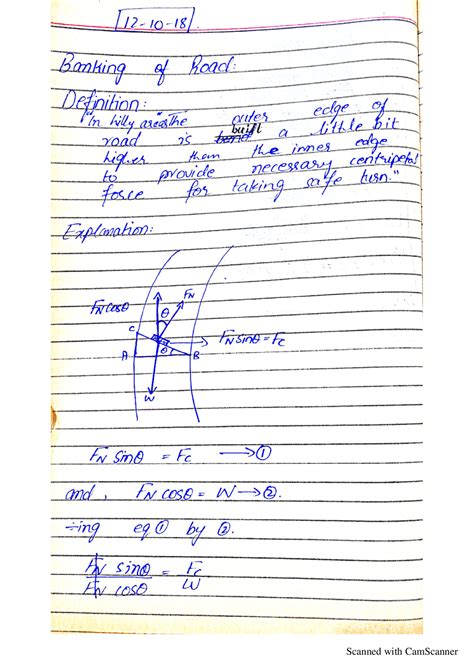 12-10-18
Banking of Road:
Definition:
"In hilly areas the outer edge of
road is built a little bit
higher than the inner edge
to provide necessary centripetal
force for taking safe turn."
Explanation:
FN cosθ
FN
θ
C
FN sinθ = Fc
A
θ
B
W
FN sinθ = Fc → ①
and, FN cosθ = W → ②.
÷ing eq ① by ②.
FN sinθ / FN cosθ = Fc / W
Scanned with CamScanner